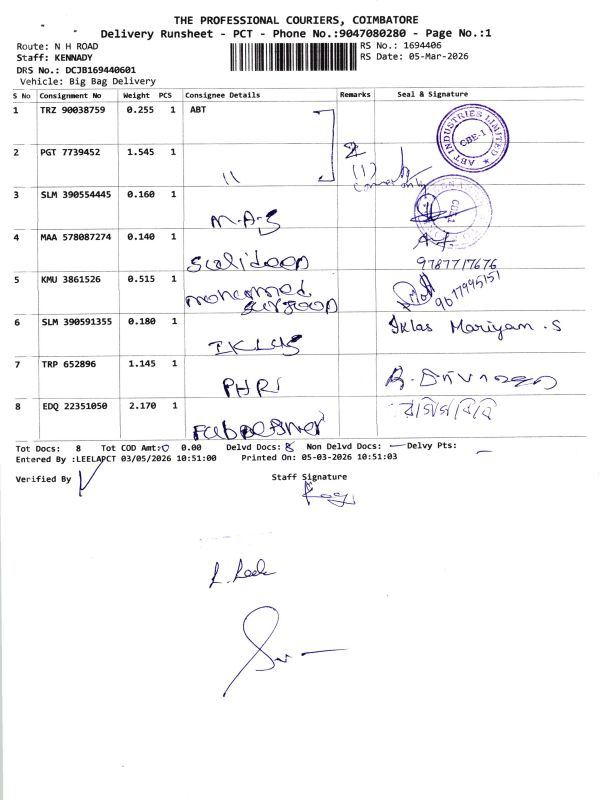 THE PROFESSIONAL COURIERS, COIMBATORE
Delivery Runsheet - PCT - Phone No.:9047080280 - Page No.:1
Route: N H ROAD
RS No.: 1694406
Staff: KENNADY
RS Date: 05-Mar-2026
DRS No.: DCJB169440601
Vehicle: Big Bag Delivery
S No Consignment No Weight PCS Consignee Details Remarks Seal & Signature
1 TRZ 90038759 0.255 1 ABT
ABT INDUSTRIES LIMITED CBE-1
2 PGT 7739452 1.545 1 "
2
(1)
3 SLM 390554445 0.160 1 M.A.J
4 MAA 578087274 0.140 1
9787717676
5 KMU 3861526 0.515 1 mohamed
9677995151
6 SLM 390591355 0.180 1 IKLAS
Iklas Mariyam . S
7 TRP 652896 1.145 1 PHRI
8 EDQ 22351050 2.170 1
Tot Docs: 8 Tot COD Amt:0 0.00 Delvd Docs: 8 Non Delvd Docs: — Delvy Pts: —
Entered By :LEELAPCT 03/05/2026 10:51:00 Printed On: 05-03-2026 10:51:03
Verified By
Staff Signature